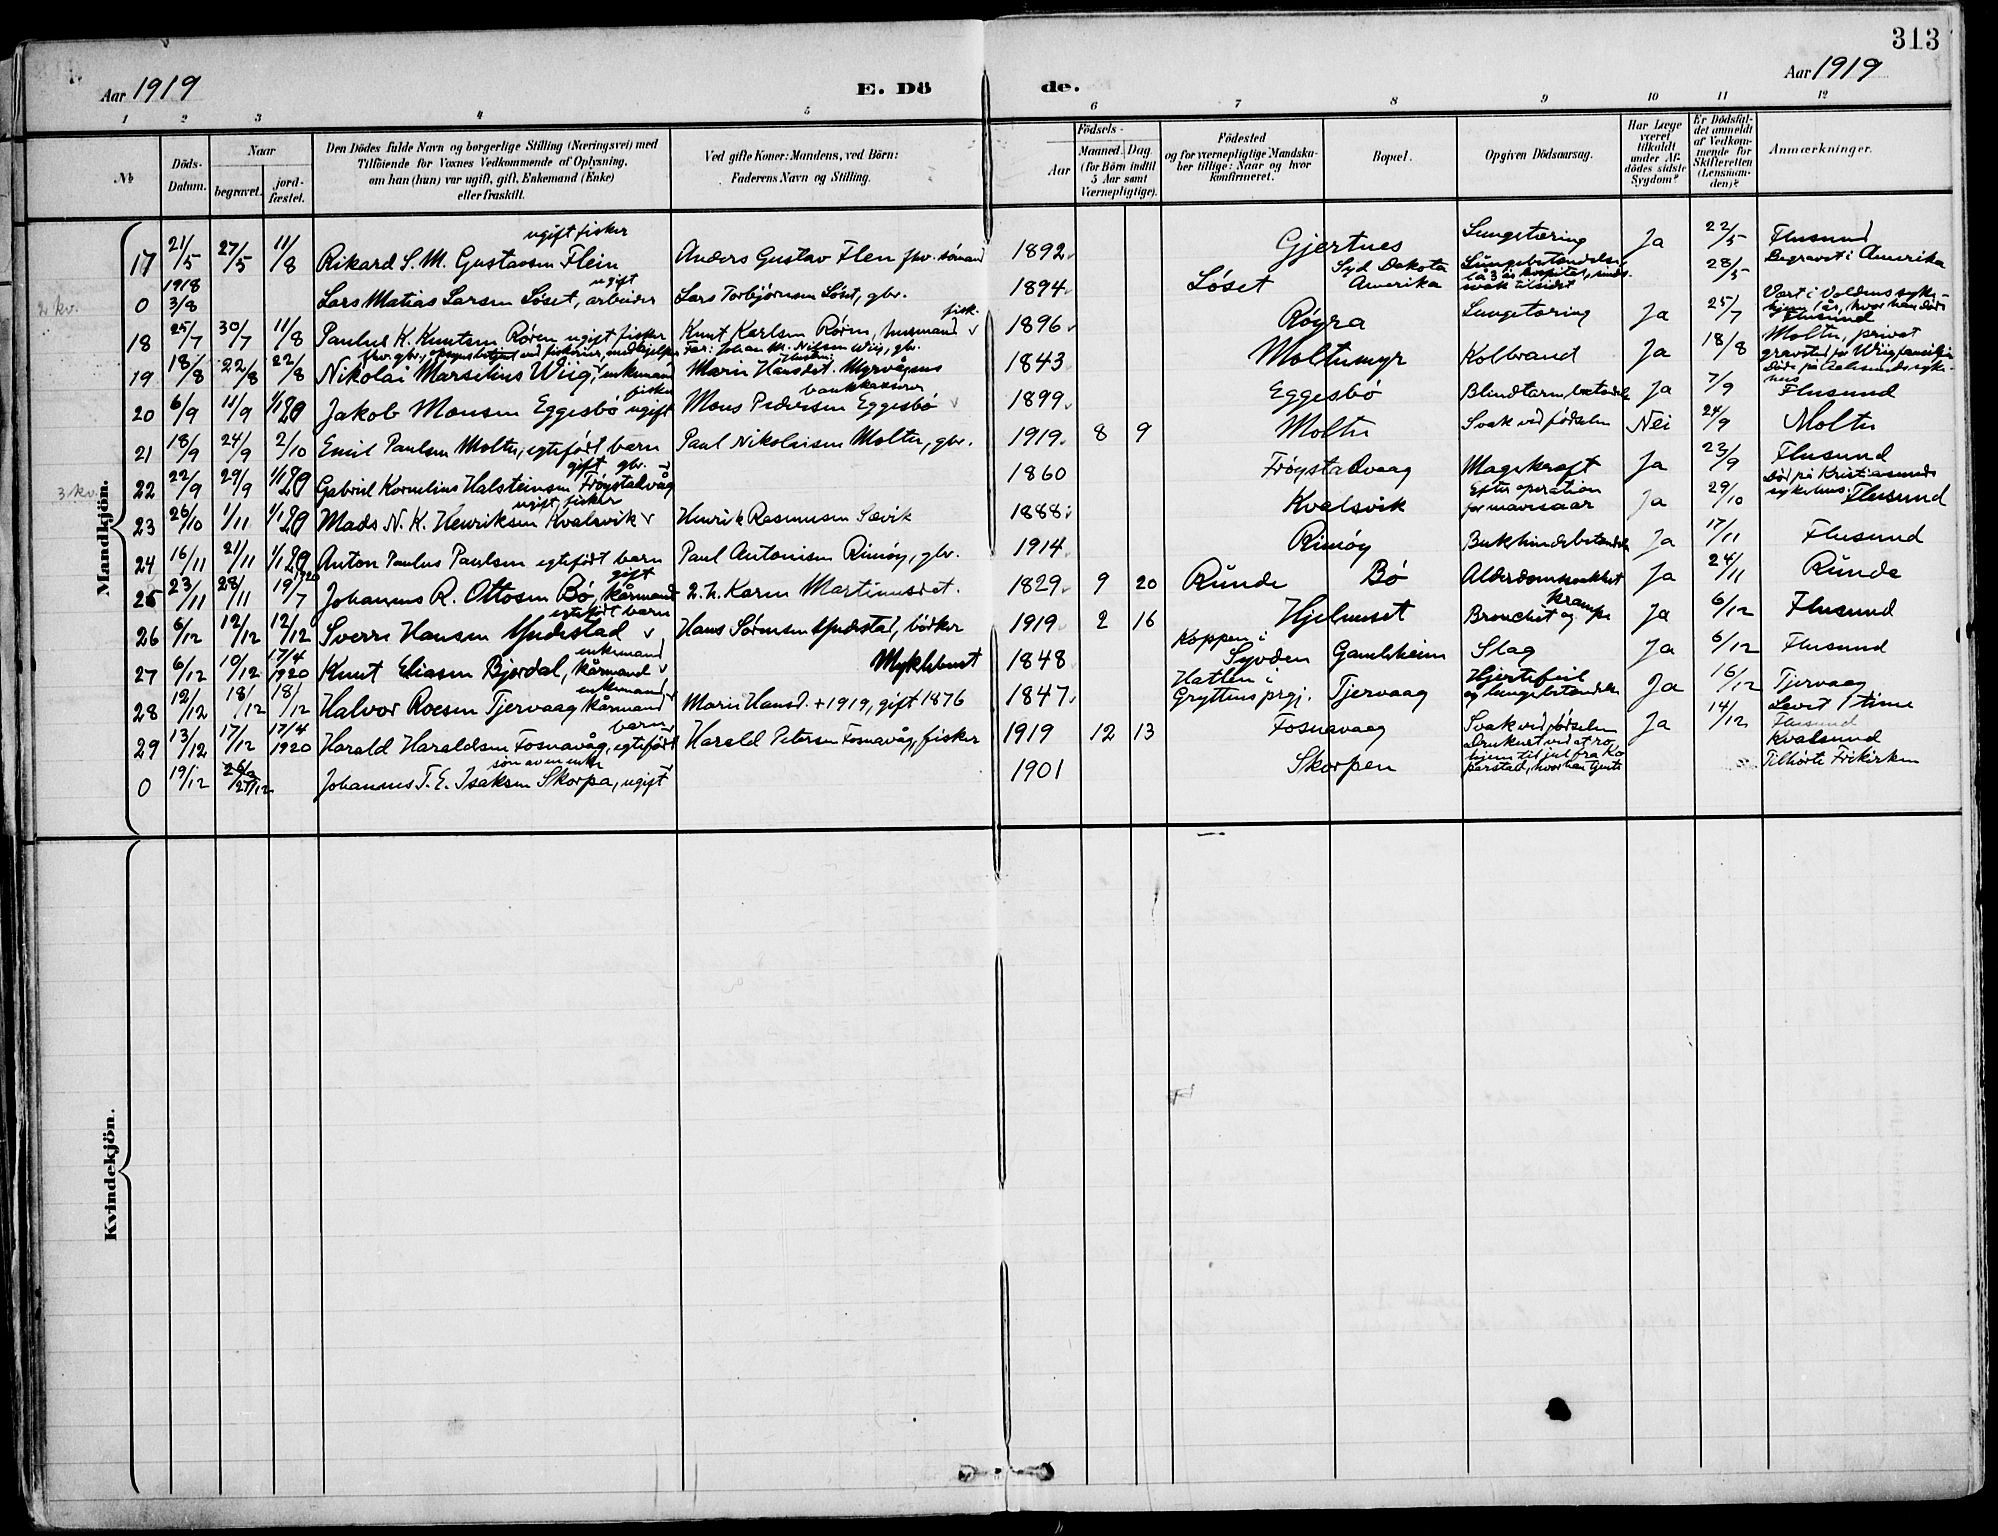 313
Aar 1919
E. Dö
de.
Aar 1919
1 2 3 4 5 6 7 8 9 10 11 12
№
Döds-Datum.
Naar
begravet.
jord-fæstet.
Den Dödes fulde Navn og borgerlige Stilling (Næringsvei) med
Tilföiende for Voxnes Vedkommende af Oplysning,
om han (hun) var ugift, gift, Enkemand (Enke)
eller fraskilt.
Ved gifte Koner: Mandens, ved Börn:
Faderens Navn og Stilling.
Födsels-
Aar
Maaned. Dag
(for Börn indtil
5 Aar samt
Værnepligtige).
Födested
og for værnepligtige Mandska-
ber tillige: Naar og hvor
konfirmeret.
Bopæl.
Opgiven Dödsaarsag.
Har Læge
været
tilkaldt
under Af-
dödes sidste
Sygdom?
Er Dödsfal-
det anmeldt
af Vedkom-
mende for
Skifteretten
(Lensman-
den)?
Anmærkninger.
Mandkjön.
2 kv.
3 kv.
17 21/5 27/5 11/8 Rikard S. M. Gustavsen Flein ugift fisker Anders Gustav Flen fhv. sömand 1892 Gjertnes Lungetæring Ja 22/5 Flusund
0 1918 3/8 Lars Matias Larsen Löset, ugift arbeider Lars Torbjörnsen Löset, gbr. 1894 Löset Syd Dakota Amerika Lungebetændelse, lå 3 år hospital, sinds-svak tilsidst 28/5 Begravet i Amerika
18 25/7 30/7 11/8 Paulus K. Knutsen Røren ugift fisker Knut Karlsen Rørn, husmand fisk. 1896 Røyra Lungetæring Ja 25/7 Vært i Voldens syke-hjem 1 år, hvor han døde Flusund
19 18/8 22/8 22/8 Nikolai Marselius Wiig, enkemand Far: Johan M. Nilsen Wiig, gbr. Marie Hansdet. Myrvågnes 1843 Moltumyr Kolbrand Ja 18/8 Moltu, privat gravsted på Wiigfamilien
20 6/9 11/9 1/1 20 Jakob Monsen Eggesbø ugift fisker Mons Pedersen Eggesbø bankkasserer 1899 Eggesbö Blindtarmbetændelse Ja 7/9 Døde på Aalesunds syke-hus Flusund
21 18/9 24/9 2/10 Emil Paulsen Moltu, egtefödt barn Paul Nikolaisen Moltu, gbr. 1919 8 9 Moltu Svak ved födselen Nei 24/9 Moltu
22 22/9 29/9 1/1 20 Gabriel Kornelius Halsteinsen Frøystadvåg gift gbr. 1860 Frøystadvaag Magekræft Ja 23/9 Flusund
23 26/10 1/11 1/1 20 Mads N. K. Henriksen Kvalsvik ugift fisker Henrik Rasmussen Sævik 1888 Kvalsvik Efter operation for mavesaar Ja 29/10 Död på Kristiasunds sykehus Flusund
24 16/11 21/11 1/1 20 Anton Paulus Paulsen egtefödt barn Paul Antonisen Rimøy, gbr. 1914 Rimøy Bukhindebetændelse Ja 17/11 Flusund
25 23/11 28/11 19/7 1920 Johannes R. Ottosen Bø, gift kårmand 2. h. Karen Martinusdet. 1829 9 20 Runde Bø Alderdomssvakhet Ja 24/11 Runde
26 6/12 12/12 12/12 Sverre Hansen Yndestad egtefödt barn Hans Sørensen Yndestad, bödker 1919 2 16 Hjelmeset Bronchit og krampe Ja 6/12 Flusund
27 6/12 10/12 17/4 1920 Knut Eliasen Bjørdal, enkemand kårmand Myklebust 1848 Koppen i Syvden Gamleheim Slag Ja 6/12 Flusund
28 12/12 18/12 18/12 Halvor Roesen Tjervaag enkemand kårmand Marie Hansd. + 1919, gift 1876 1847 Hatlen i Gryttens prgj. Tjervaag Hjertefeil og lungebetændelse Ja 16/12 Tjervaag
29 13/12 17/12 17/4 1920 Harald Haraldsen Fosnavåg, egtefödt barn Harald Petersen Fosnavåg, fisker 1919 12 13 Fosnavaag Svak ved födselen Ja 14/12 Levet 1 time Flusund
0 19/12 27/12 Johannes T. E. Isaksen Skorpa, ugift sön av en enke 1901 Skorpen Druknet ved at ro hjem til jul fra Ko-parstad, hvor han tjente Kvalsund Tilhørte Frikirken
Kvindekjön.